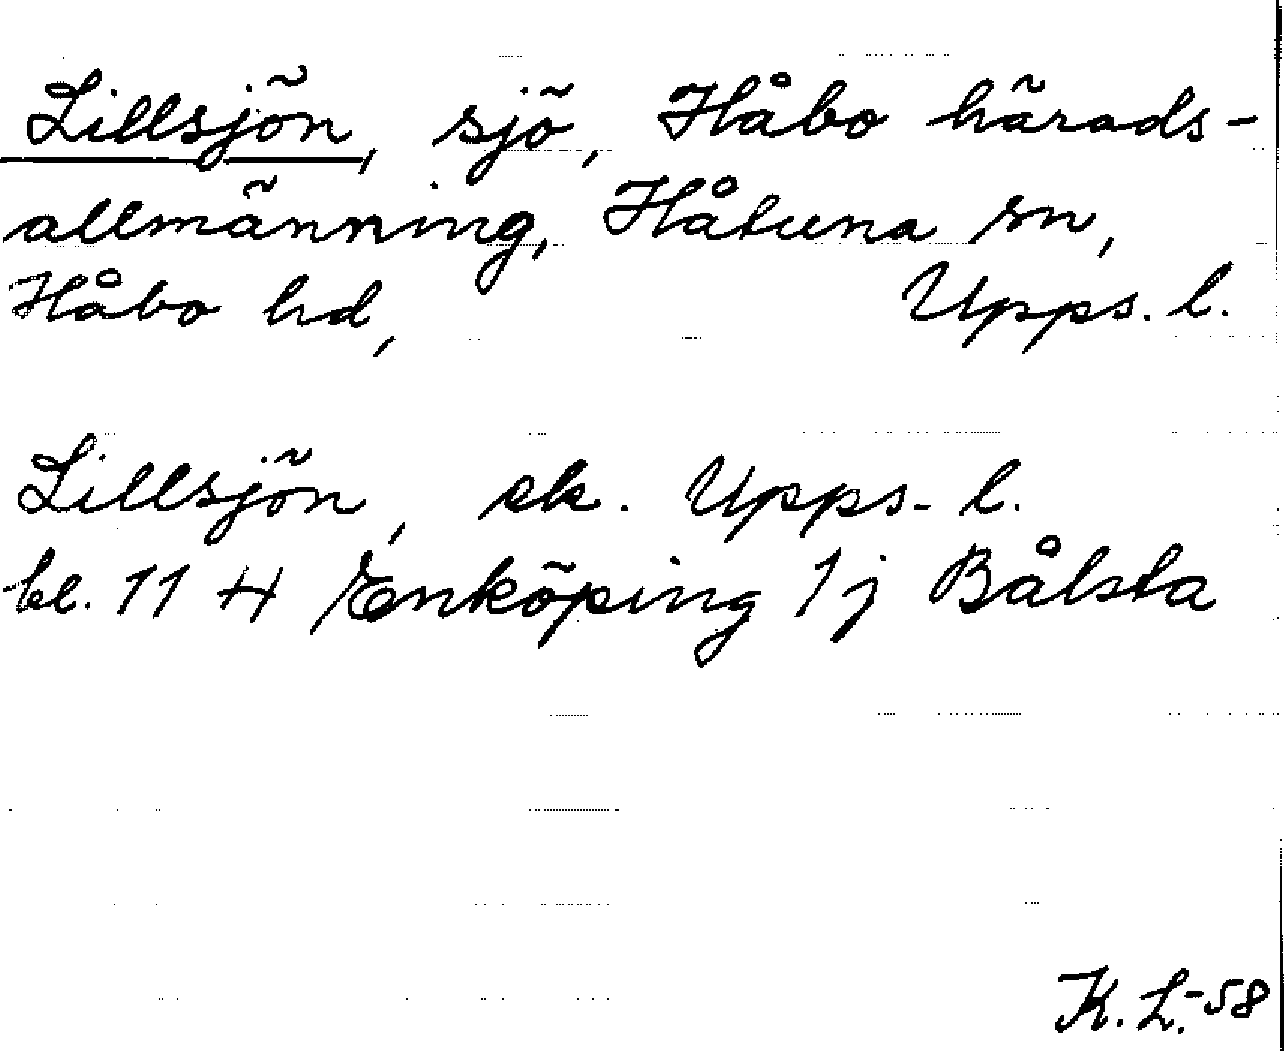 Lillsjön, sjö, Håbo härads-
allmänning, Håtuna sn,
Håbo hd, Upps. l.
Lillsjön, ek. Upps. l.
bl. 11 H Enköping 1j Bålsta
K. L.-58